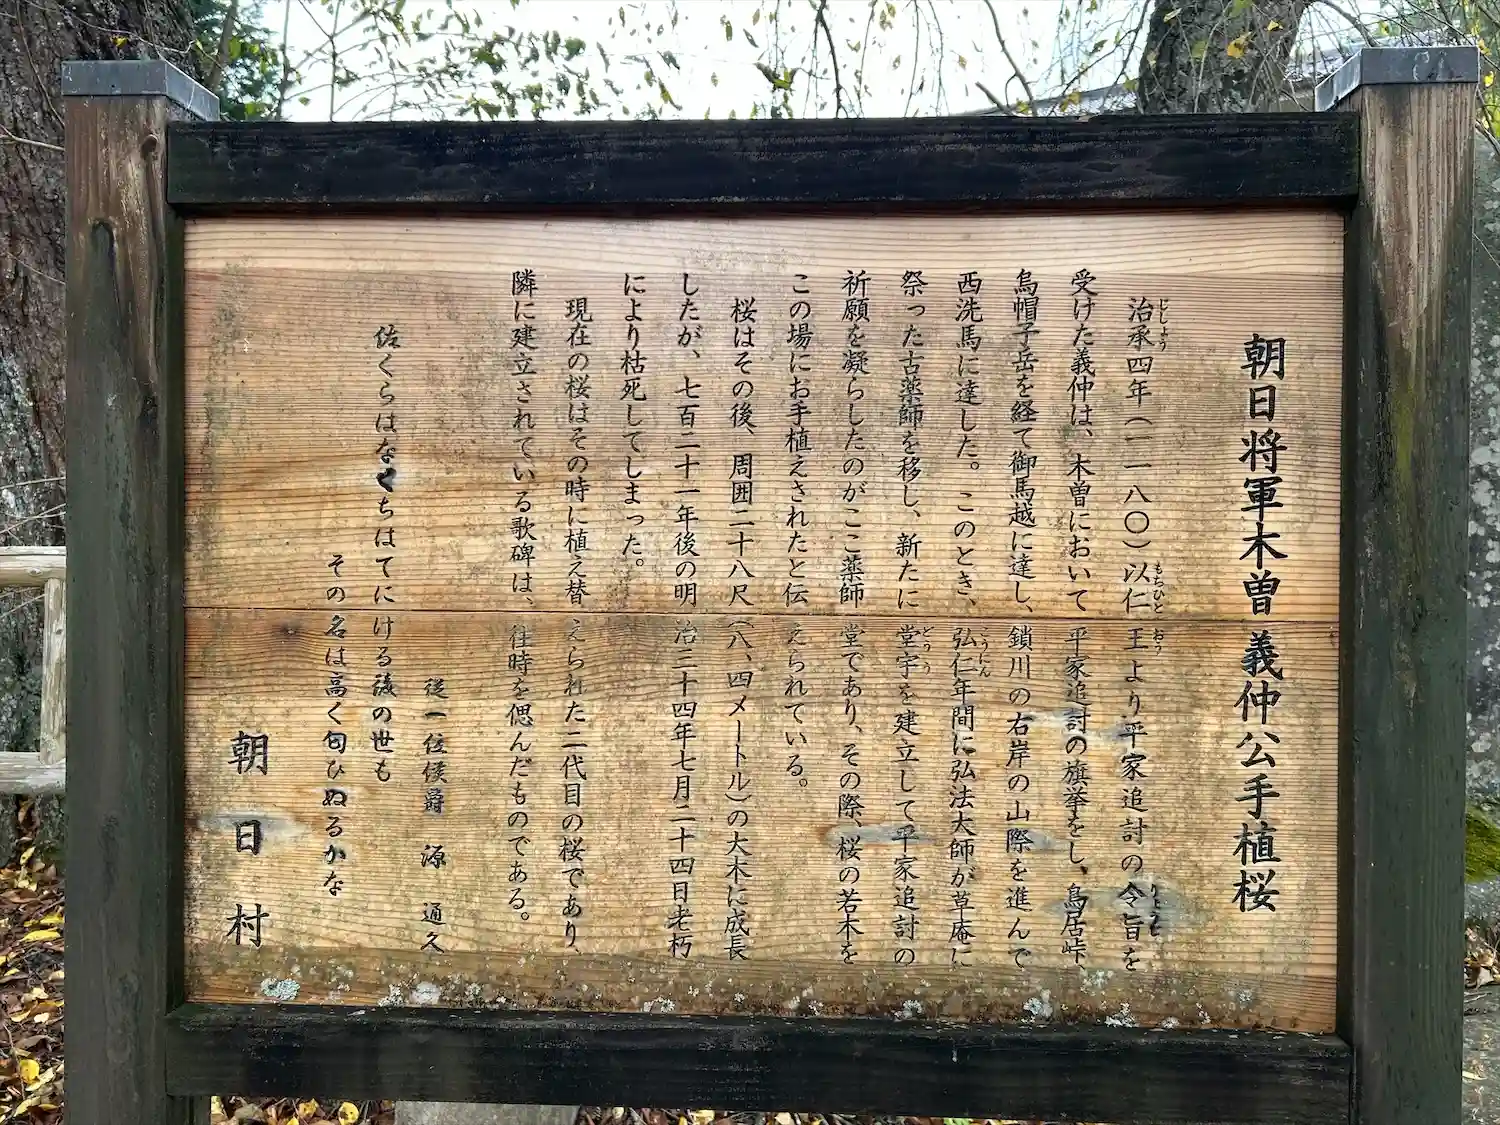 朝日将軍木曽義仲公手植桜
治承四年（一一八〇）以仁王より平家追討の令旨を
受けた義仲は、木曽において平家追討の旗挙をし、鳥居峠、
烏帽子岳を経て御馬越に達し、鎖川の右岸の山際を進んで
西洗馬に達した。このとき、弘仁年間に弘法大師が草庵に
祭った古薬師を移し、新たに堂宇を建立して平家追討の
祈願を凝らしたのがここ薬師堂であり、その際、桜の若木を
この場にお手植えされたと伝えられている。
桜はその後、周囲二十八尺（八、四メートル）の大木に成長
したが、七百二十一年後の明治三十四年七月二十四日老朽
により枯死してしまった。
現在の桜はその時に植え替えられた二代目の桜であり、
隣に建立されている歌碑は、往時を偲んだものである。
従一位侯爵 源 通久
佐くらはなくちはてにける後の世も
その名は高く匂ひぬるかな
朝日村